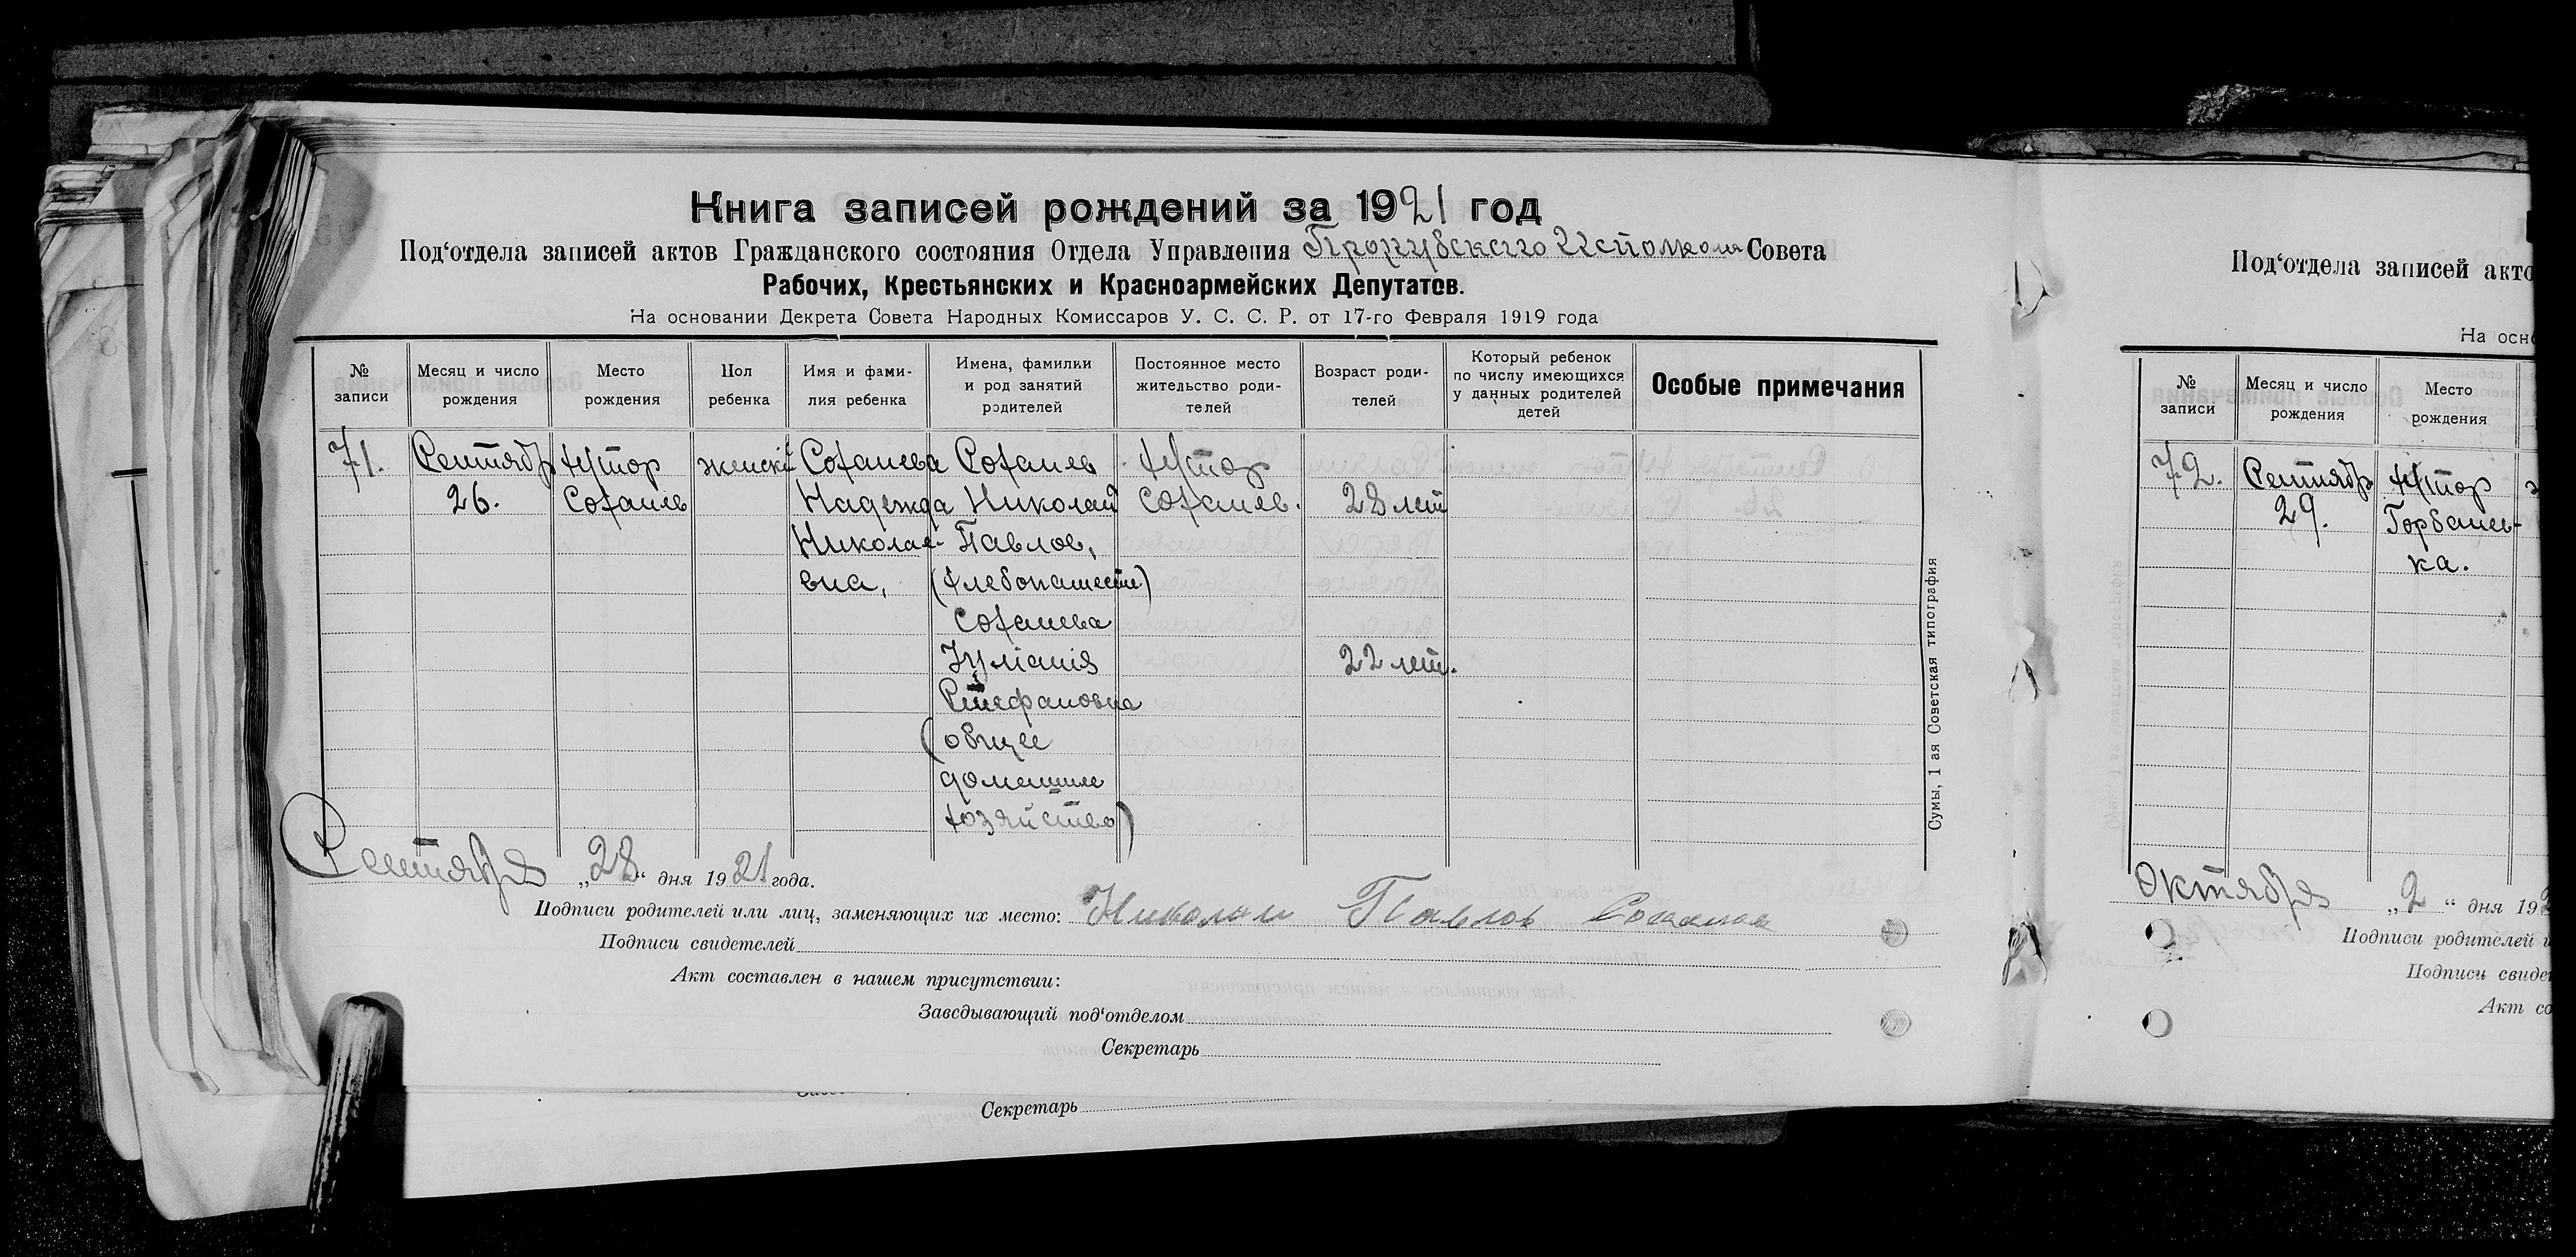 Книга записей рождений за 1921 год
Под'отдела записей актов Гражданского состояния Отдела Управления Исполкома Совета
Рабочих, Крестьянских и Красноармейских Депутатов.
На основании Декрета Совета Народных Комиссаров У. С. С. Р. от 17-го Февраля 1919 года
№ записи
Месяц и число рождения
Место рождения
Пол ребенка
Имя и фами-
лия ребенка
Имена, фамилии
и род занятий
родителей
Постоянное место
жительство роди-
телей
Возраст роди-
телей
Который ребенок
по числу имеющихся
у данных родителей
детей
Особые примечания
71.
Сентябр
26.
Хутор
Соханев
женскі
Соханева
Надежда
Николае-
вна,
Соханев
Николай
Павлов,
(хлебопашеств)
Соханева
Іуліанія
Стефановна
(общее
домашнее
хозяйство)
Хутор
Соханев.
28 лет
22 лет.
Сентября „28“ дня 1921 года.
Подписи родителей или лиц, заменяющих их место: Николай Павлов
Подписи свидетелей
Акт составлен в нашем присутствии:
Заведывающий под'отделом
Секретарь
Сумы, 1 ая Советская типография
Секретарь
Под'отдела записей акто
На осно
№ записи
Месяц и число рождения
Место рождения
72.
Сентябр
29.
Хутор
Горбанев-
ка.
Октября „2“ дня 192
Подписи родителей и
Подписи свиде
Акт со